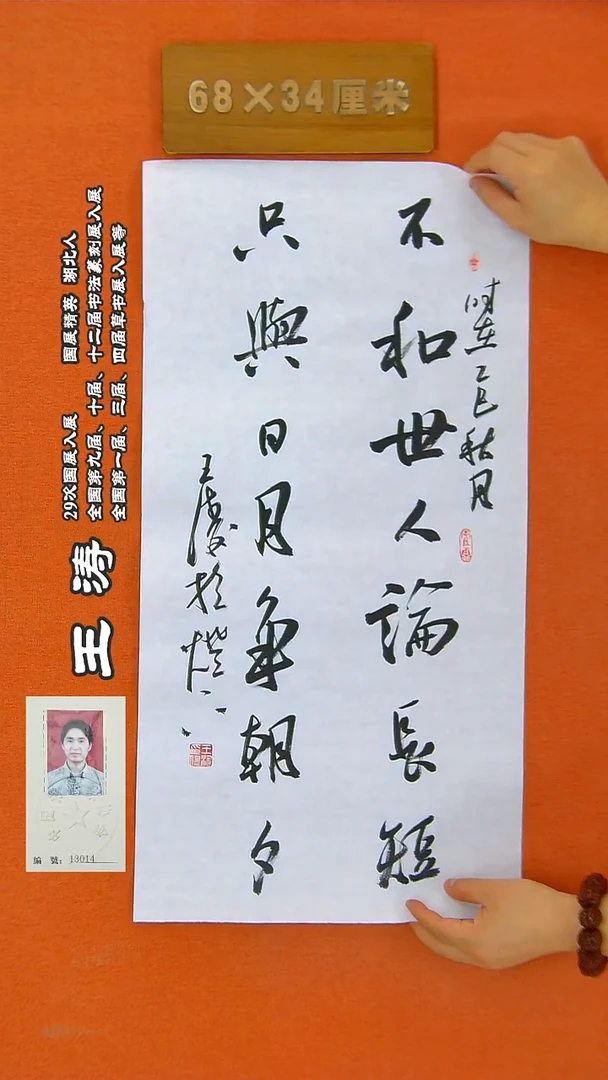 68×34厘米
时在乙巳秋月
不和世人論長短
只與日月争朝夕
王涛於灯下
王涛
29次国展入展 国展精英 湖北人
全国第九届、十届、十二届书法篆刻展入展
全国第一届、三届、四届草书展入展等
編號:13014